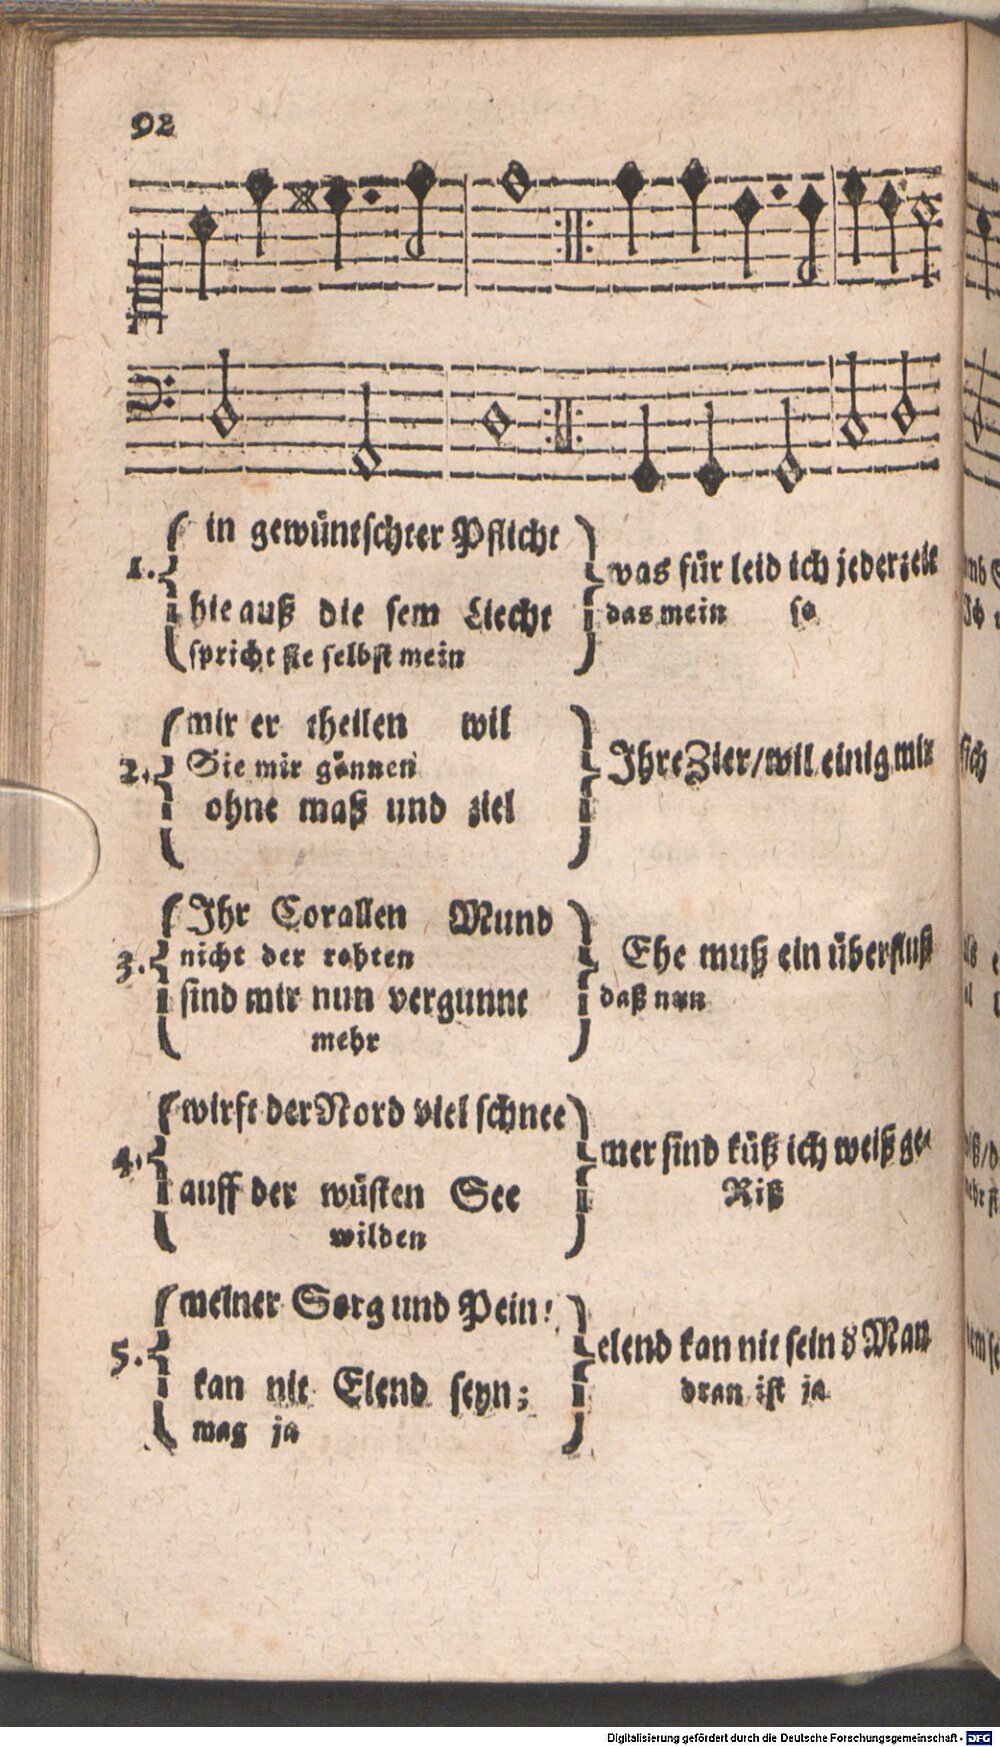 92
in gewüntschter Pflicht
1.
was für leid ich jederzeit
hie auß die sem Liecht
das mein so
spricht sie selbst mein
mir er theilen wil
2.
Sie mir gönnen
Ihre Zier/wil einig mir
ohne maß und ziel
Ihr Corallen Mund
3.
nicht der rohten
Ehe muß ein überfluß
sind mir nun vergunnt
daß nun
mehr
wirft der Nord viel schnee
4.
mer sind küß ich weiß ge-
auff der wüsten See
Riß
wilden
meiner Sorg und Pein!
5.
elend kan nit sein d Man
kan nit Elend seyn;
dran ist ja
mag ja
Digitalisierung gefördert durch die Deutsche Forschungsgemeinschaft - DFG